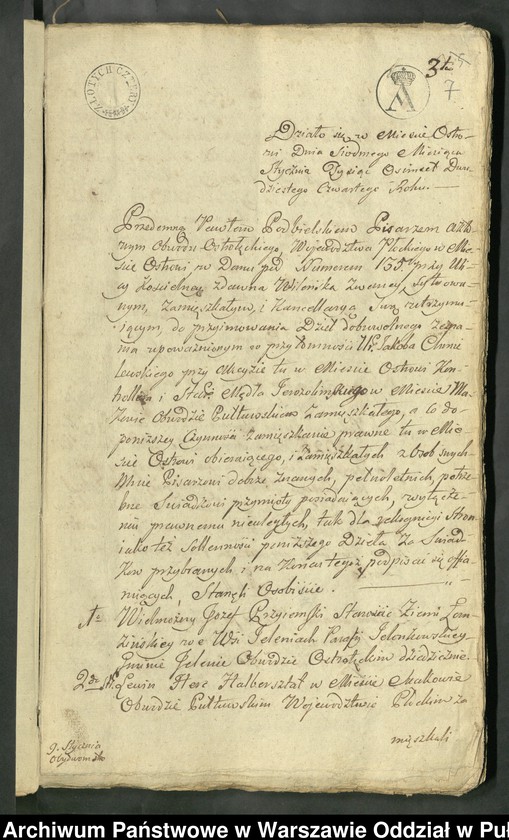 ZŁOTYCH CZTERY
34
7
Działo się w Mieście Ostro-
wi Dnia Siodmego Miesiąca
Stycznia Tysiąc Osimset Dwu-
dziestego Czwartego Roku.
Przedemną Pawłem Podbielskiem Pisarzem Akto-
wym Obwodu Ostrołęckiego, Województwa Płockiego w Mie-
ście Ostrowi w Domu pod Numerem 135 przy Uli-
cy Kościelney zdawna Wileńska zwaney sytuowa-
nym, Zamieszkałym, i Kancellaryą Swą utrzymu-
iącym, do przyimowania Dzieł dobrowolnego zezna-
nia upoważnionym w przytomności Ur. Jakoba Chmie-
lewskiego przy Urzędzie tu w Mieście Ostrowi Kon-
trollera i Star. Mędla Jerozolimskiego w Mieście Ma-
kowie Obwodzie Pułtuskim Zamieszkałego, a co do
ninieyszey Czynności zamieszkanie prawne tu w Mie-
ście Ostrowi obieraiącego, i Zamieszkałych z Osob swych
Mnie Pisarzowi dobrze znanych, pełnoletnich, potrze-
bne Świadkowi przymioty posiadaiących, wyłącze-
niu prawnemu nieuległych, tak dla
iako też Sollenności poniższego Dzieła za Świad-
kow przybranych i na Końcu tegoż podpisać się offia-
ruiących, Stanęli Osobiście.
1o Wielmożny Jozef Przyiemski Starościc Ziemi Łom-
żyńskiey we Wsi Jeleniach Parafii Jelonkowskiey
Gminie Jelenie Obwodzie Ostrołęckim dziedzicznie
2do St. Lewin Herc Halbersztat w Mieście Makowie
Obwodzie Pułtuskim Województwie Płockim za
mięszkali
9. Stycznia
Obydwom
Archiwum Państwowe w Warszawie Oddział w Puł